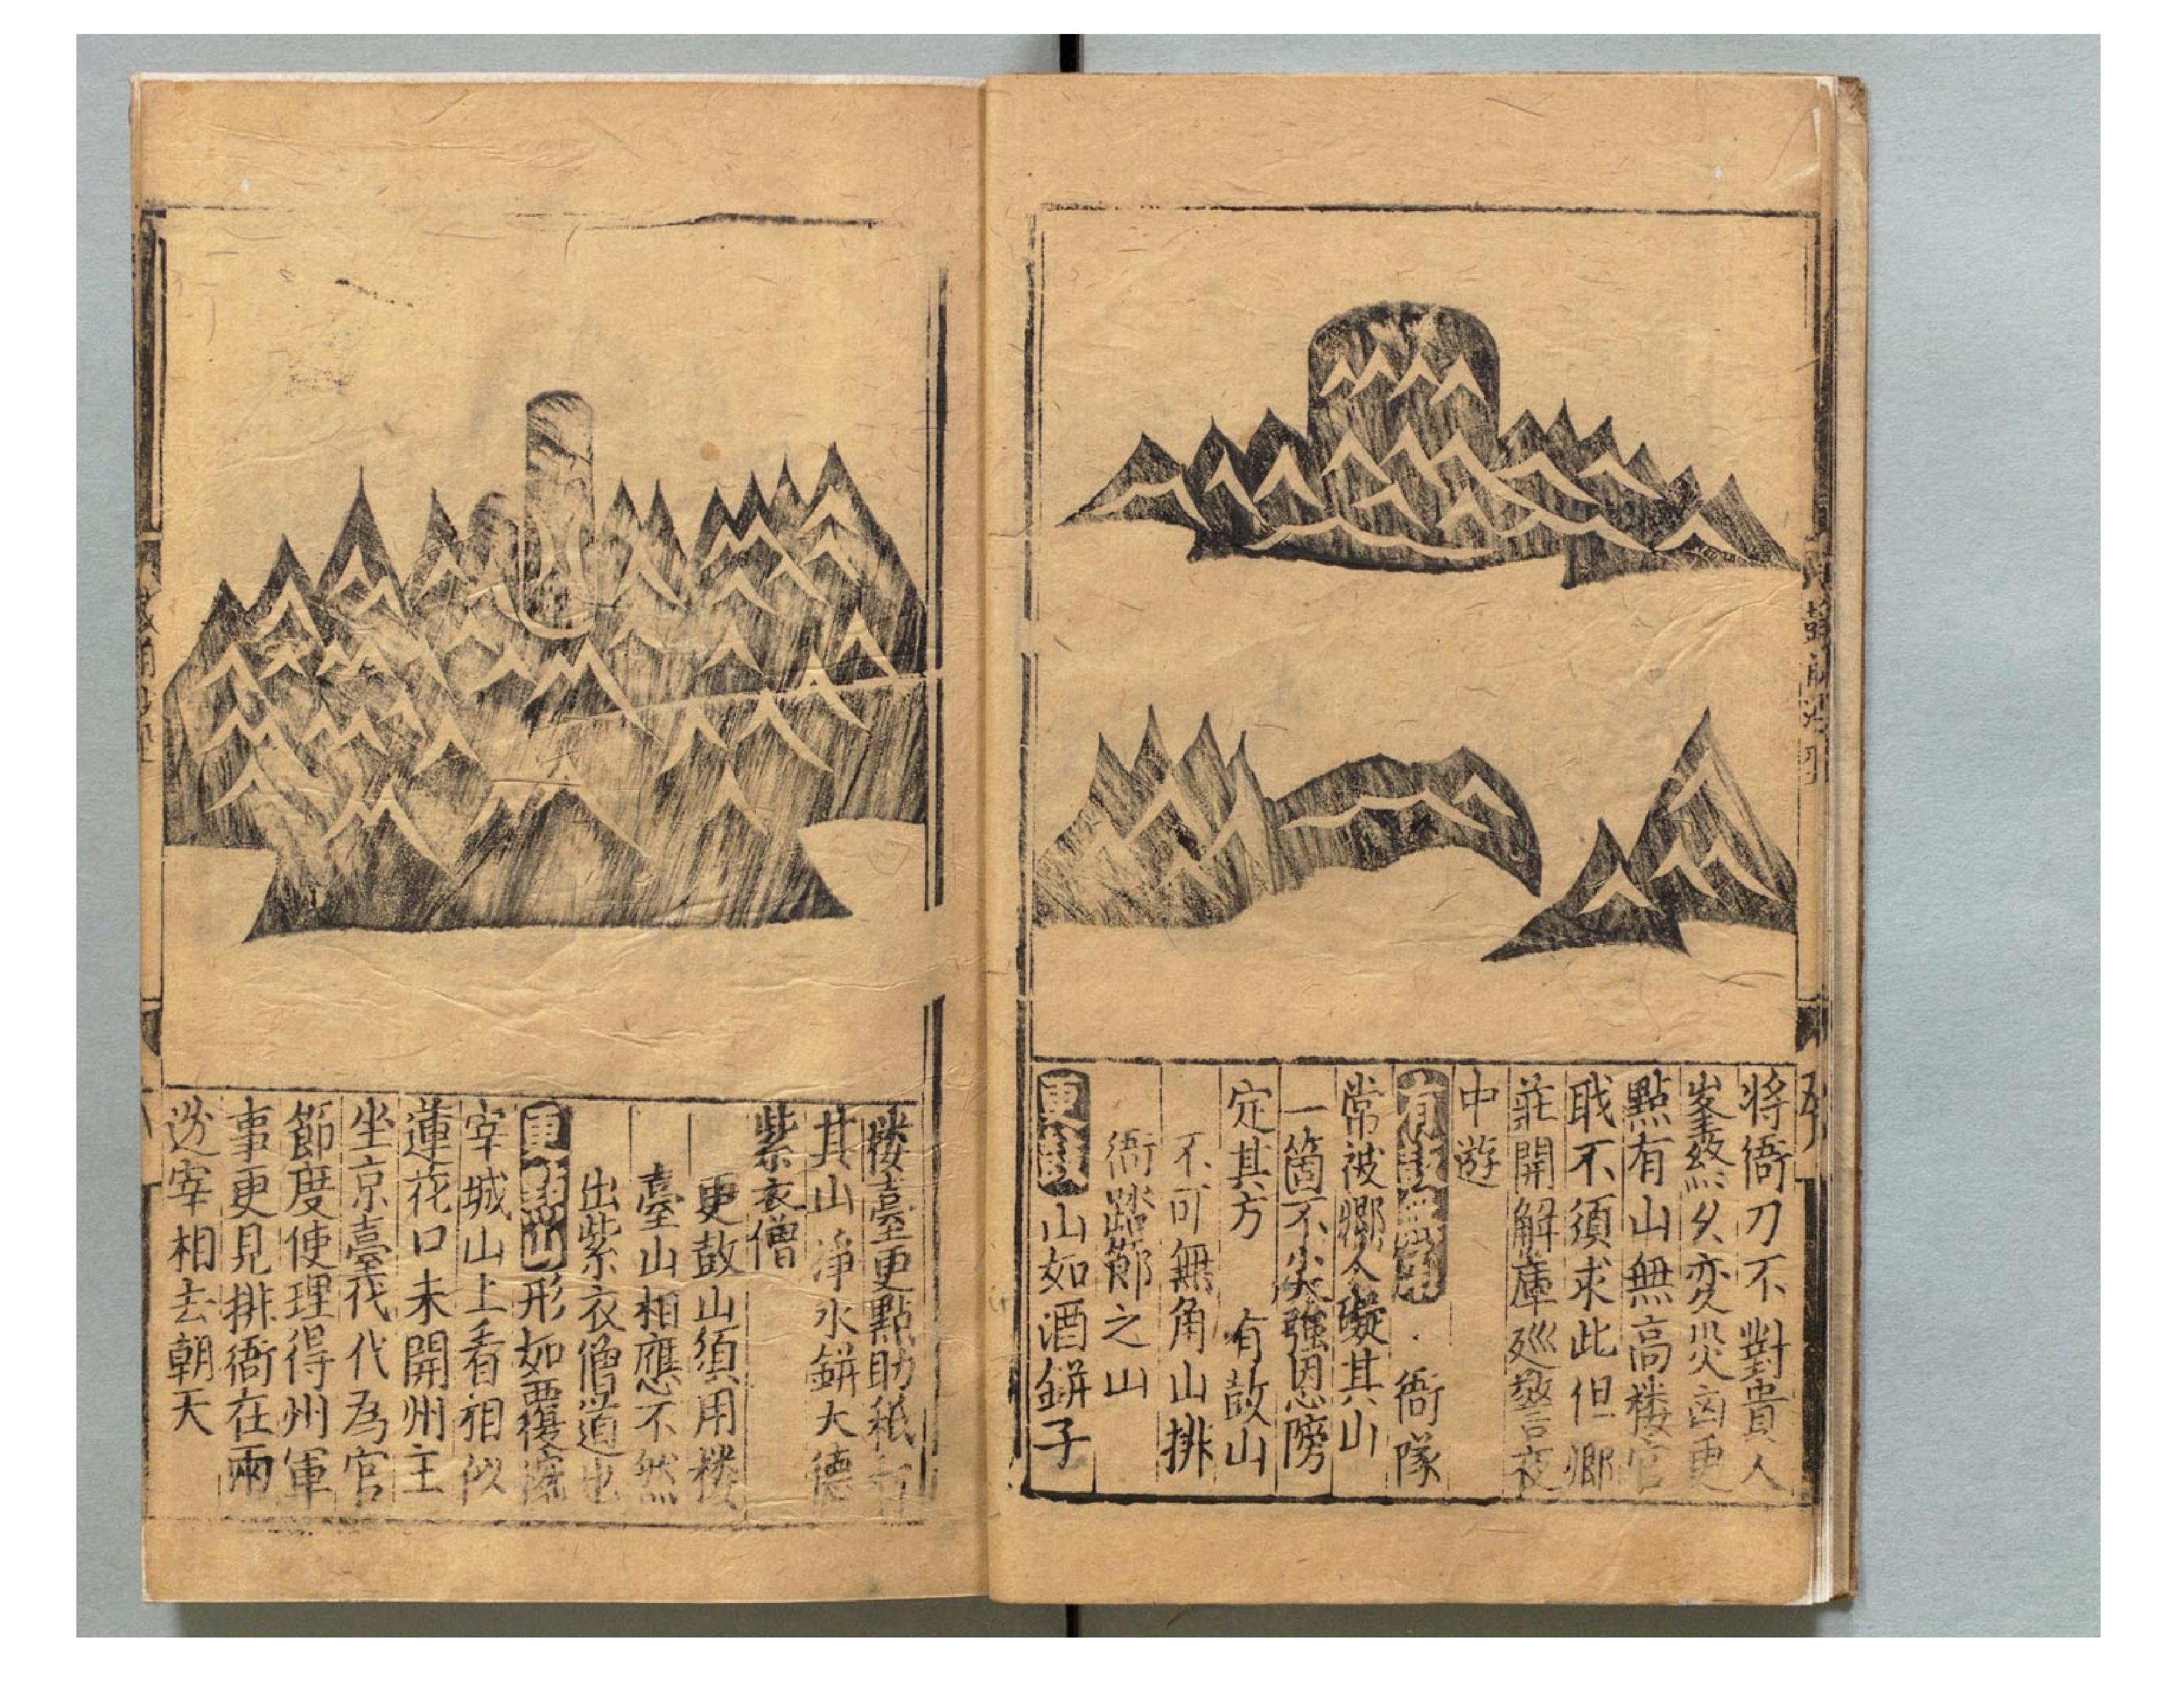 將衙刀不對貴人
峯終久変災凶更
點有山無高楼官
職不須求此但鄉
莊開解庫廵警夜
中遊
有鼓無角 衙隊
常被鄉人礙其山
一箇不尖強因傍
定其方 有鼓山
不可無角山排
衙踏節之山
更鼓山如酒缾子
楼臺更點助祗
其山淨水缾大德
紫衣僧
更鼓山須用楼
臺山相應不然
出紫衣僧道也
更鼓山形如覆
宰城山上看相似
蓮花口未開州主
坐京臺茷代為官
節度使理得州軍
事更見排衙在兩
边宰相去朝天